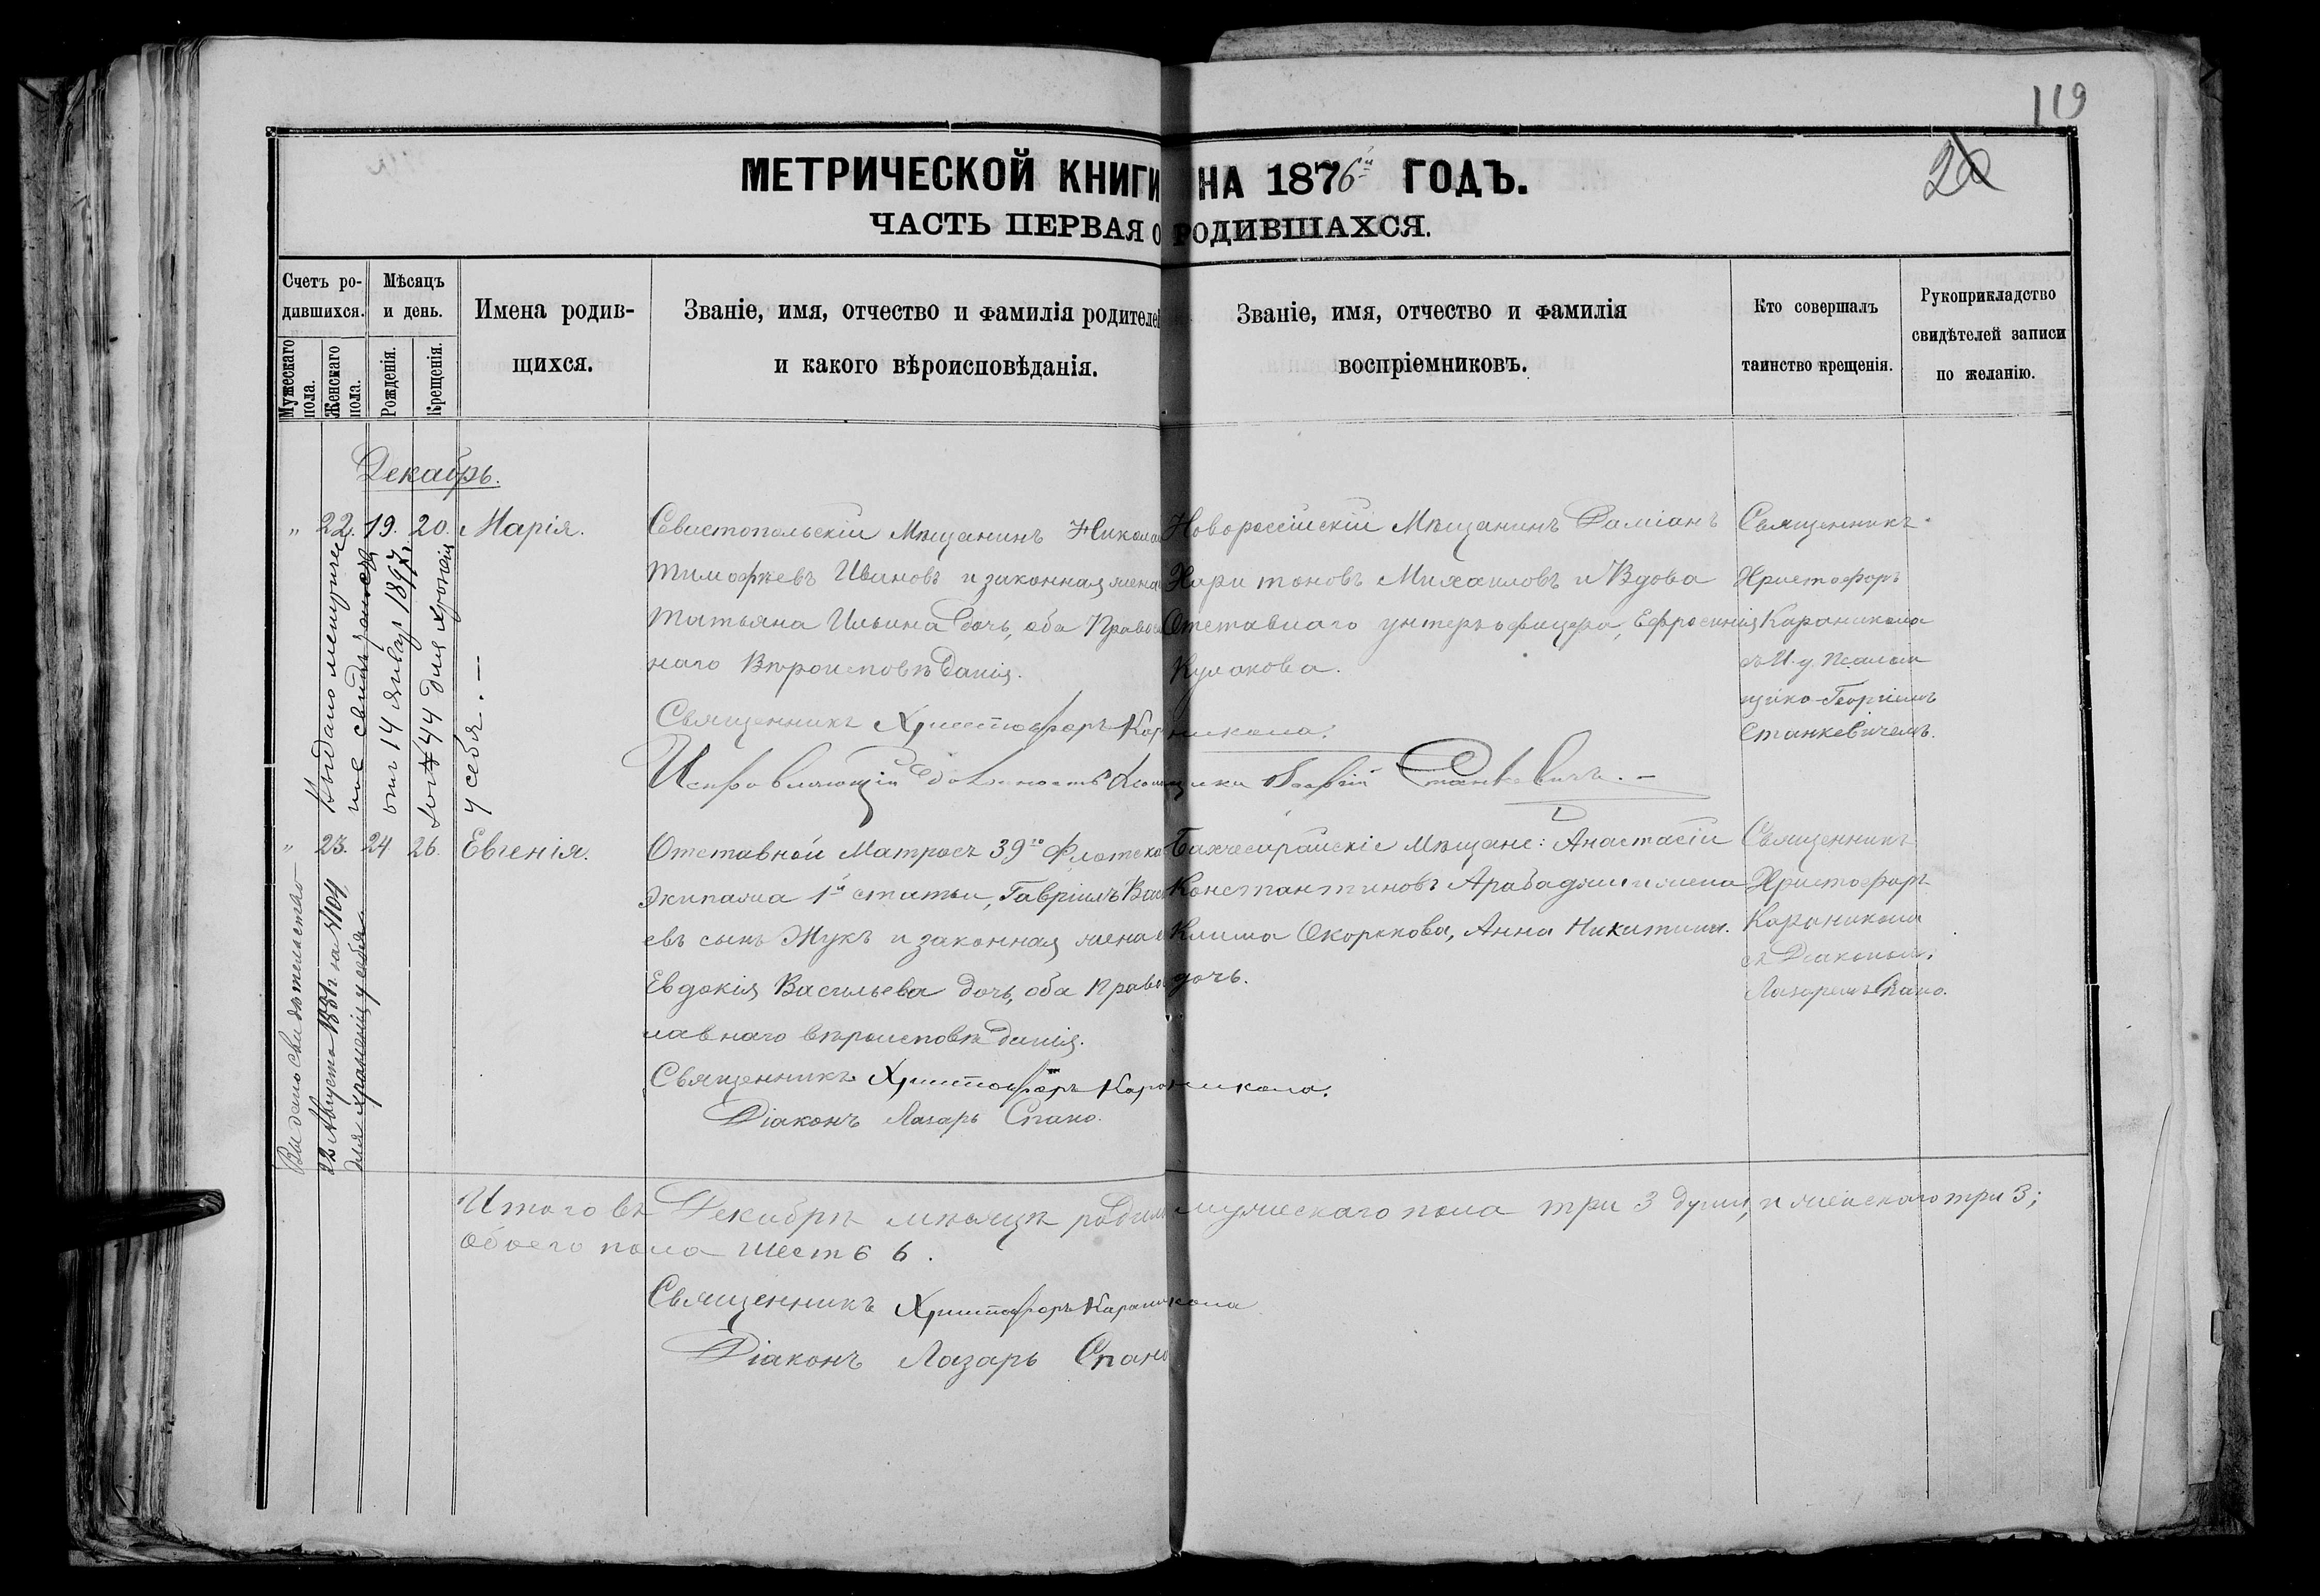 119
20
МЕТРИЧЕСКОЙ КНИГИ НА 1876й ГОДЪ.
ЧАСТЬ ПЕРВАЯ О РОДИВШАХСЯ.
Счетъ ро-
дившихся.
Мужескаго пола.
Женскаго пола.
Мѣсяцъ
и день.
Рожденія.
Крещенія.
Имена родив-
щихся.
Званіе, имя, отчество и фамилія родителей
и какого вѣроисповѣданія.
Званіе, имя, отчество и фамилія
воспріемниковъ.
Кто совершалъ
таинство крещенія.
Рукоприкладство
свидѣтелей записи
по желанію.
Декабрь.
" 22. 19. 20. Марія.
Севастопольскій Мѣщанинъ Никола
Тимофѣевъ Ивановъ и законная жена
Татьяна Ильина дочь, оба Правос
наго Вѣроисповѣданія.
Новороссійскій Мѣщанинъ Даміанъ
Харитоновъ Михаиловъ и Вдова
Отставнаго унтеръ офицера, Ефросинія
Кулакова.
Священникъ
Христофоръ
Караникола
съ И. у. Псалом
щика Георгіемъ
Станкевичемъ.
Священникъ Христофоръ Караникола.
Исправляющій должность Псаломщика Георгій Станкевичъ.
Выдано метриче
ское свидѣ
отъ 14 январ 1897 г.
44 для храненія
у себя. —
" 23. 24 26. Евгенія.
Отставной Матросъ 39го Флотска
экипажа 1й статьи, Гавріилъ Васи
евъ сынъ Жукъ и законная жена е
Евдокія Васильева дочь, оба Право
лавнаго вѣроисповѣданія.
Бахчесарайскіе Мѣщане: Анастасій
Константиновъ Арабаджи и жена
Клима Окоркова, Анна Никитина.
дочь.
Священникъ
Христофоръ
Караникола
съ Діакономъ
Лазаремъ Спано.
Священникъ Христофоръ Караникола.
Діаконъ Лазарь Спано.
Выдано свидѣтельство
22 Августа за № 104
для храненія у себя
Итого въ Декабрѣ мѣсяцѣ родил мужескаго пола три 3 души, и женскаго три 3;
обоего пола шесть 6.
Священникъ Христофоръ Караникола
Діаконъ Лазарь Спано